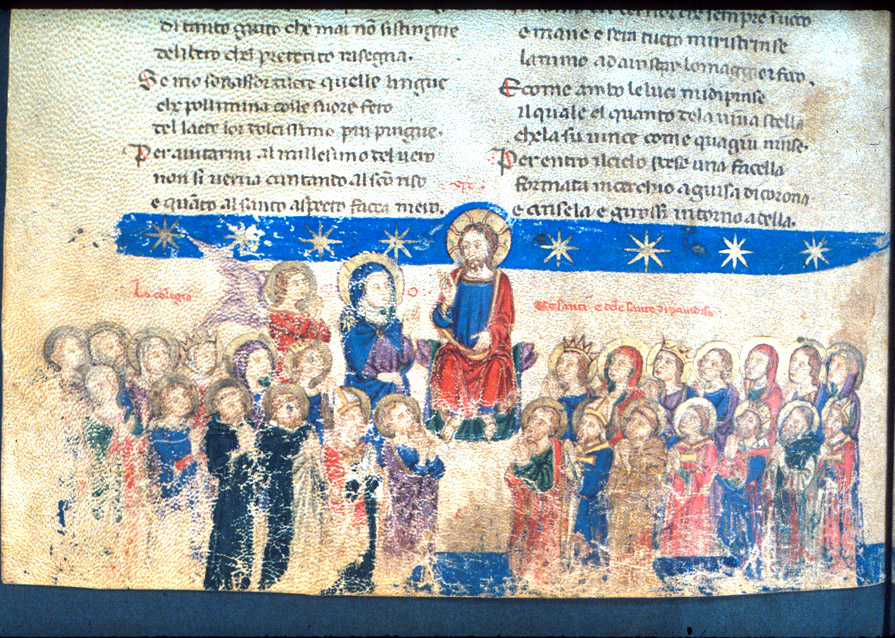 di tanto grato che mai nõ sistingue
del libro chel preterito rasegna.
Se mo sonasser tucte quelle lingue
che pollimina colle suore fero
del lacte lor dolcissimo piu pingue.
Per aiutarmi al millesimo del uero
non si uerria cantando al scõ riso
e quãto al santo aspecto facea mero.
che sempre
e mane e sera tucto mi ristrinse
lanimo ad auisar lo maggior foco.
E come ambo le luci mi dipinse
il quale et quanto dela uiua stella
chela su uince come quagiu uinse.
Per entro il cielo scese una facella
formata in cerchio a guisa di corona
e cinsela e girossi intorno adella.
Lo colegio
De santi e dele sante di paradiso